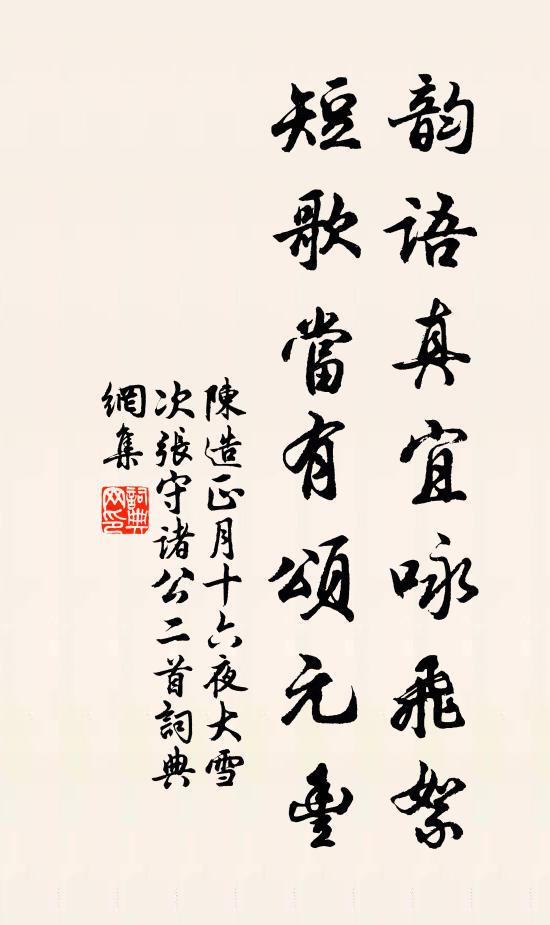 韵語真宜咏飛絮
短歌當有頌元豐
陳造正月十六夜大雪
次張守諸公二首詞典
網集
詞典
网印